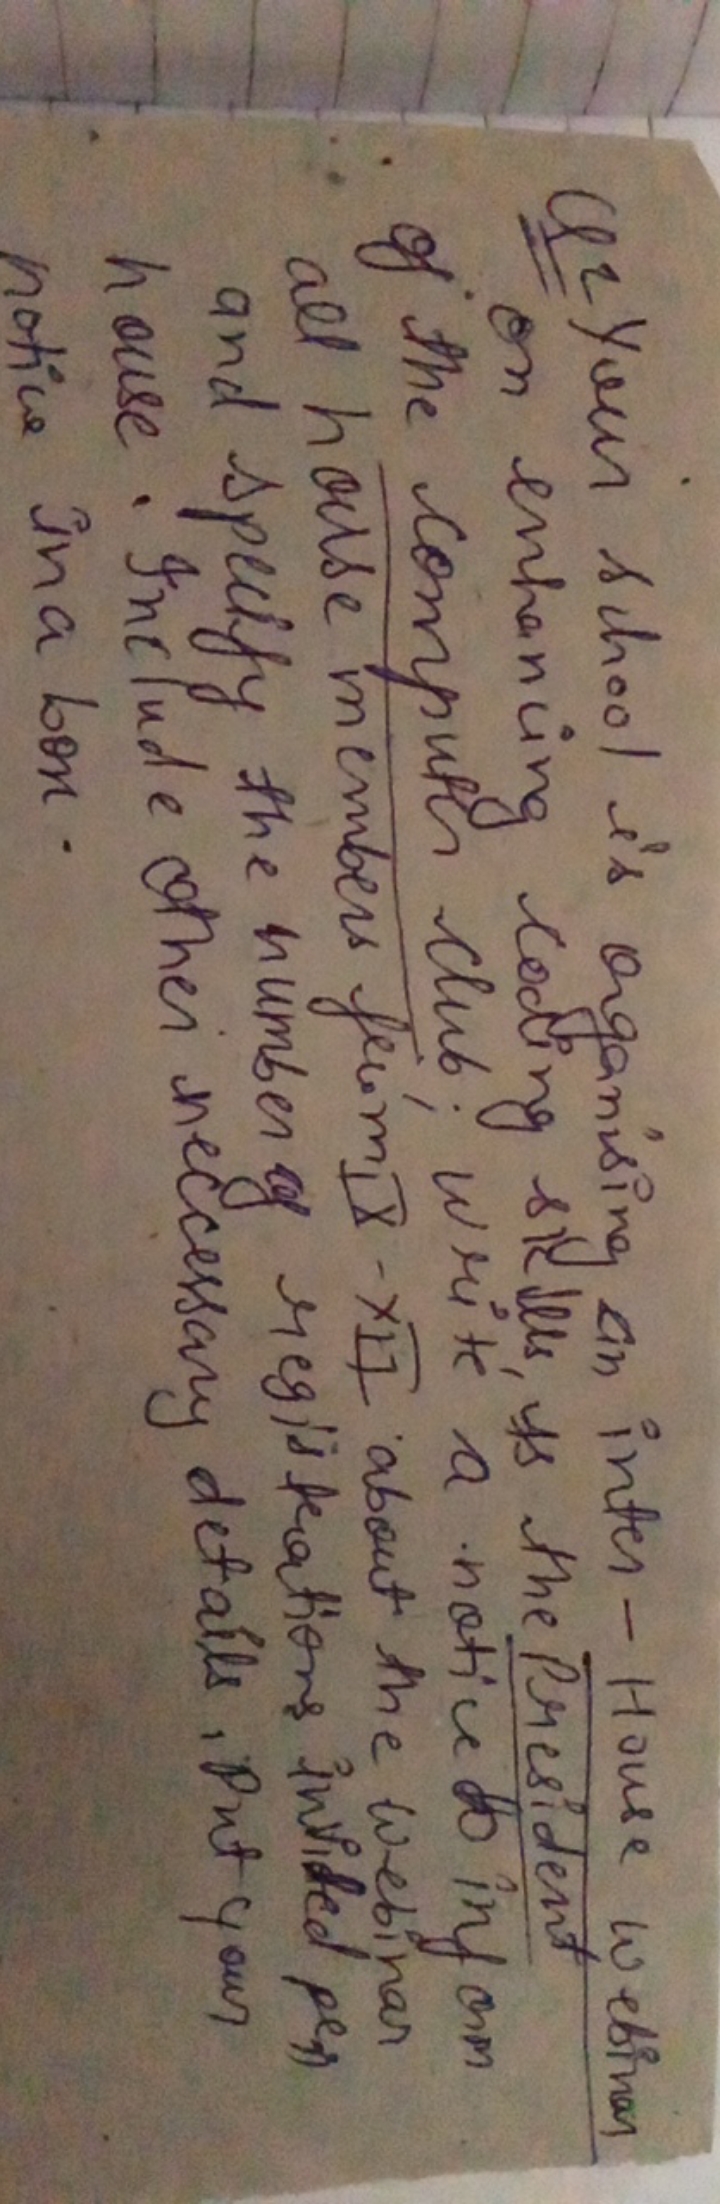 Q2 Your school is organising an inter-House webinar
on enhancing coding skills, As the President
of the computer club, write a notice to inform
all house members from IX-XII about the webinar
and specify the number of registrations invited per
house. Include other neccessary details, Put your
notice in a box.